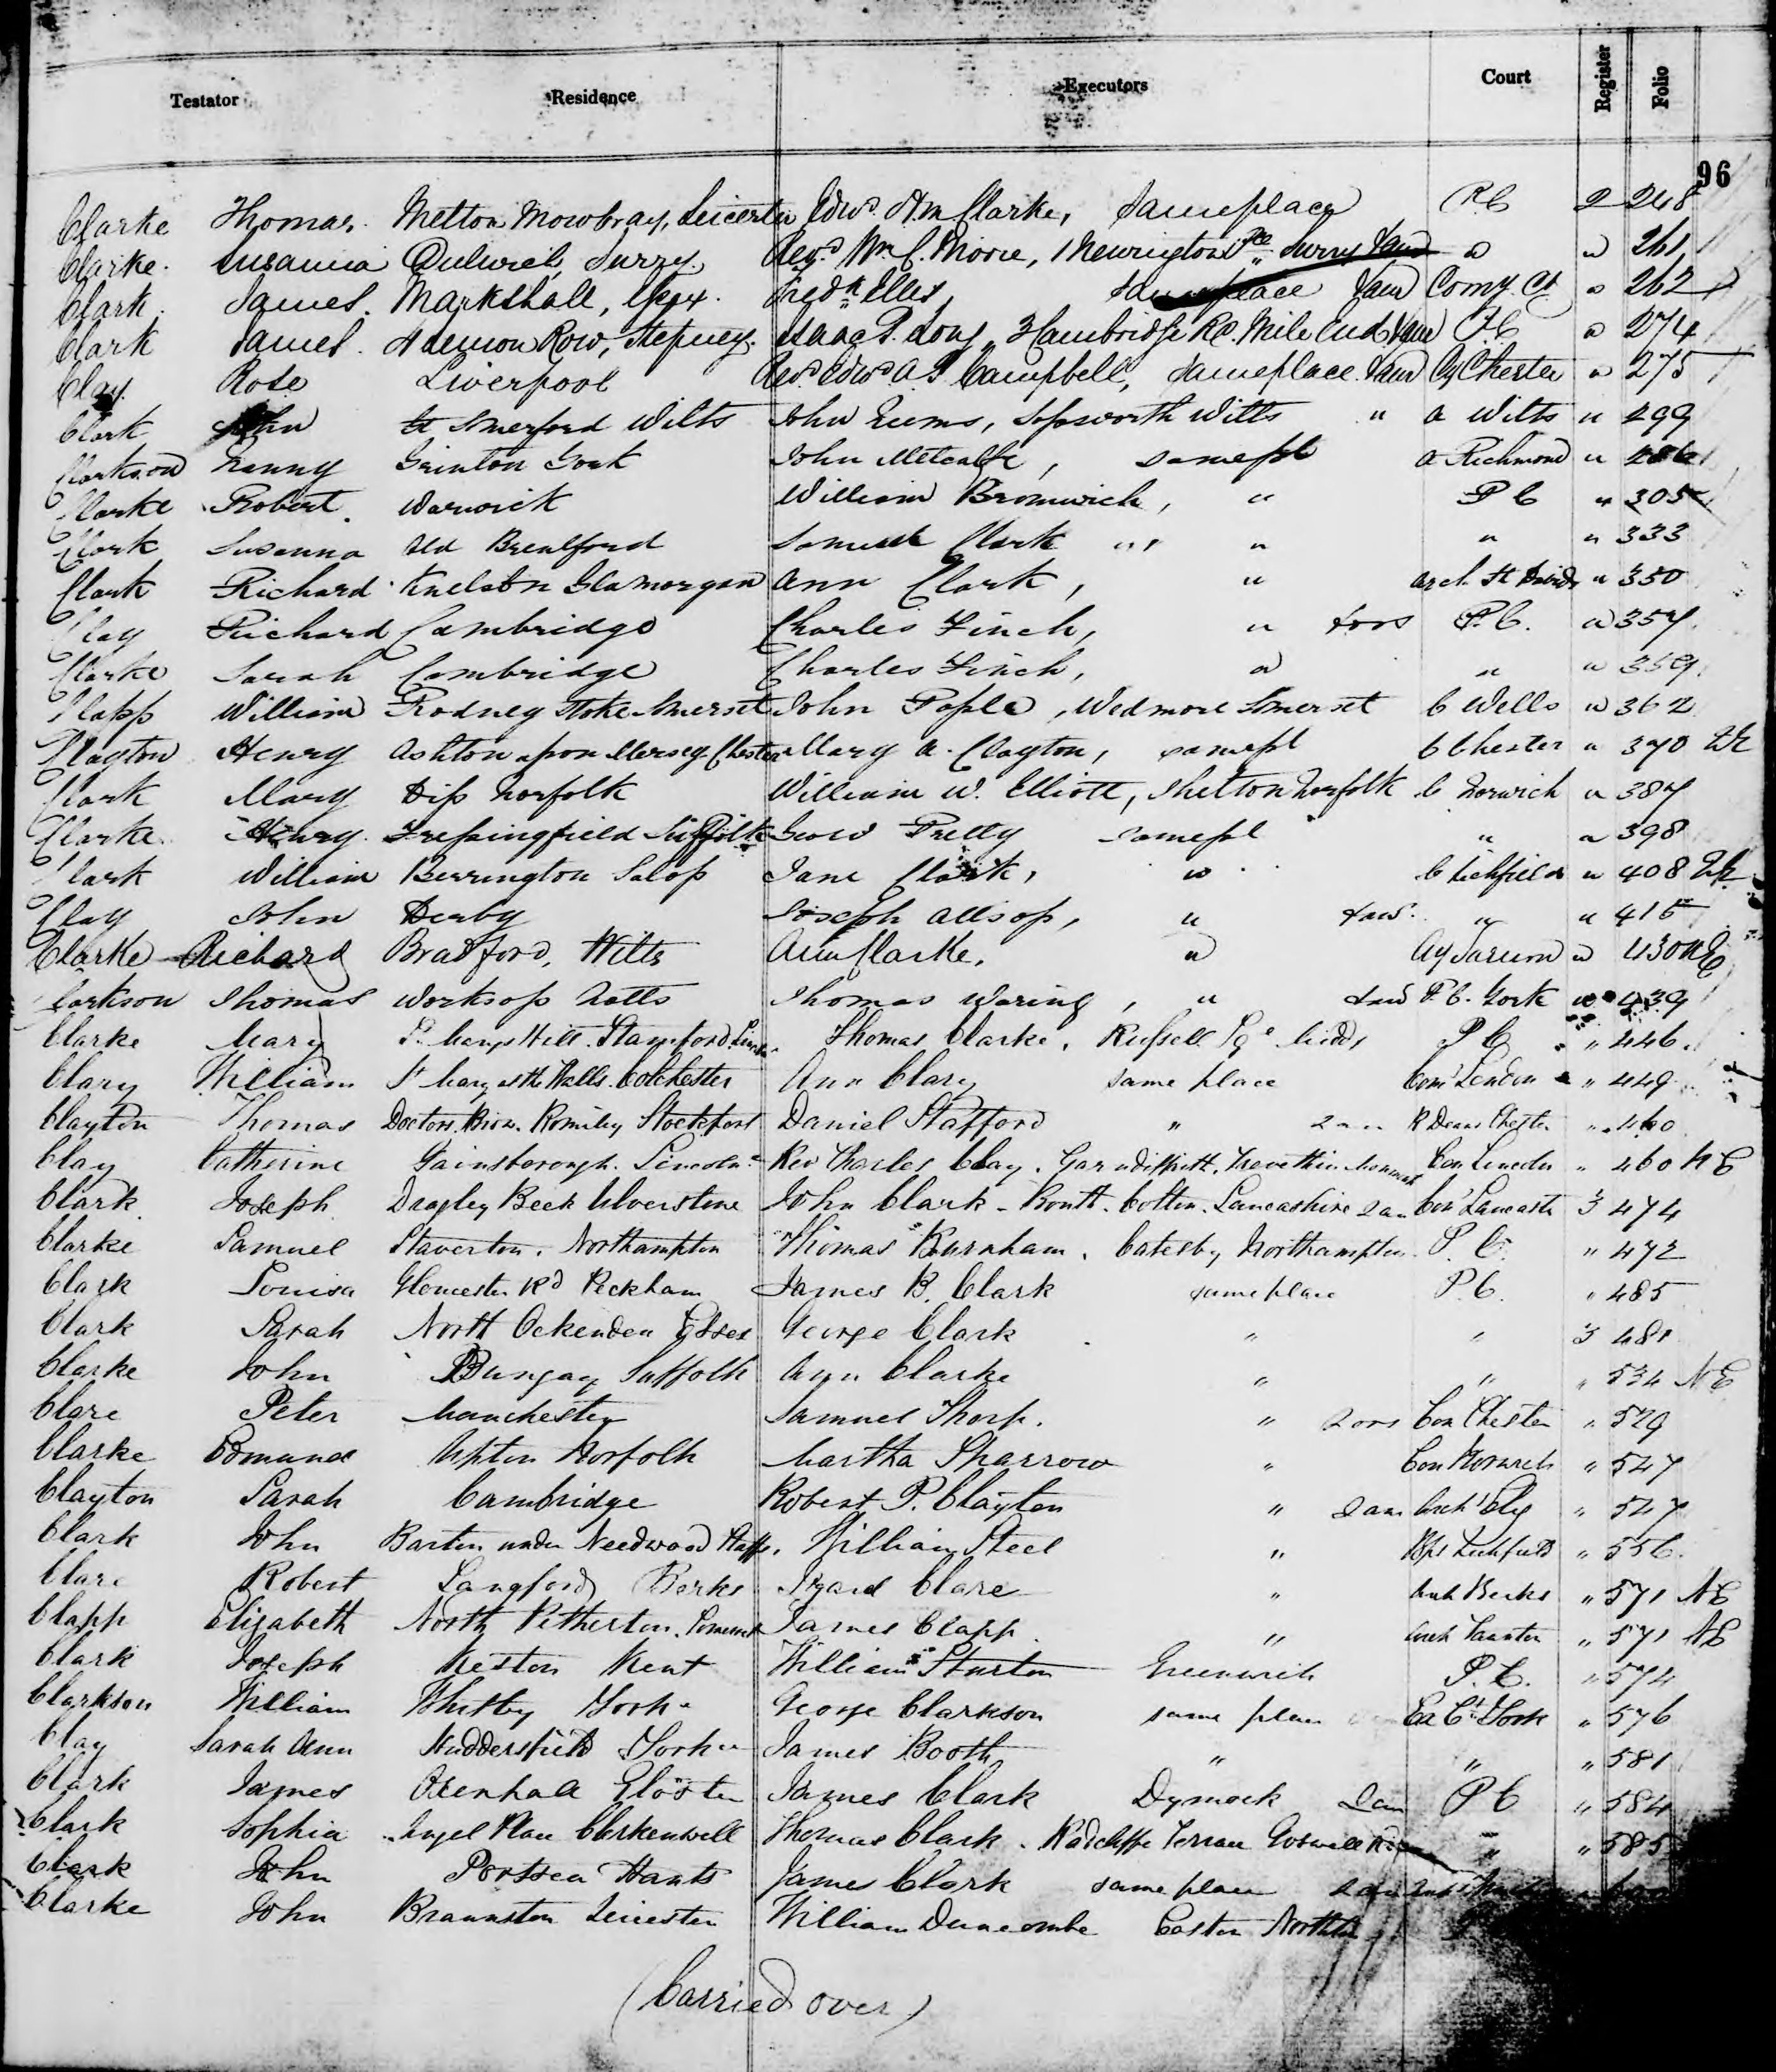 Testator Residence Executors Court Register Folio
96
Clarke Thomas. Melton Mowbray, Leicester Edwd. Wm Clarke, Same place P.C 2 248
Clarke. Susanna Dulwich, Surry. Revd. Wm. C. Moore, 1 Newington Surry " " 261
Clark. James. Markshall, Essex. Fredk Ellis, Same place Comy. Ct " 262
Clark James. Row, Stepney. Isaac Long, 3 Cambridge Rd. Mile End P.C " 274
Clay. Rose Liverpool Revd. Edwd A. Campbell, Same place. Cy Chester " 275
Clark John Gt Somerford Wilts John Neems, Sopworth Wilts " a Wilts " 299
Clarkson Nanny Grinton York John Metcalfe, same pl a Richmond "
Clarke Robert. Warwick William Bromwich, " P C " 305
Clark Susanna Old Brentford Samuel Clark " " " " 333
Clark Richard Knelston Glamorgan Ann Clark, " arch St Davids " 350
Clay Richard Cambridge Charles Finch, " P.C. " 357
Clarke Sarah Cambridge Charles Finch, " " " 359
Clapp William Rodney Stoke Somerset John Pople, Wedmore Somerset C Wells " 362
Clayton Henry Ashton upon Mersey Chester Mary A. Clayton, same pl C Chester " 370
Clark Mary Diss Norfolk William W. Elliott, Shelton Norfolk C Norwich " 387
Clarke. Henry. Fressingfield Suffolk Geo W Pretty same pl " " 398
Clark William Berrington Salop Jane Clark, " C Lichfield " 408
Clay John Derby Joseph Allsop, " " " 415
Clarke Richard Bradford, Wilts Ann Clarke, " Ay Sarum " 430 NE
Clarkson Thomas Worksop Notts Thomas Waring, " P.C. York " 439
Clarke Mary St. Marys Hill. Stamford. Thomas Clarke. Russell Sqe Middx P C " 446
Clary William St Mary at the Walls. Colchester Ann Clary same place Cony London " 449
Clayton Thomas Doctors Brow. Romiley Stockport Daniel Stafford " R Dean Chester " 460
Clay Catherine Gainsborough. Lincoln Rev Charles Clay. Trevethin Con Lincoln " 460 N E
Clark Joseph Dragley Beck Ulverstone John Clark - Bouth. Colton. Lancashire Lancaster 3 474
Clarke Samuel Staverton. Northampton Thomas Burnham. Catesby Northampton. P. C. " 472
Clark Louisa Gloucester Rd Peckham James B. Clark same place P.C. " 485
Clark Sarah North Ockenden Essex George Clark " " 3 481
Clarke John Bungay Suffolk Ann Clarke " " " 534 N E
Clare Peter Manchester Samuel Thorp. " Con Chester " 529
Clarke Edmund Upton Norfolk Martha Sparrow " Con Norwich " 547
Clayton Sarah Cambridge Robert P. Clayton " Ely " 547
Clark John Barton under Needwood Staffs. William Steel " Lichfield " 556.
Clare Robert Langford Berks Clare " Arch Berks " 571 NE
Clapp Elizabeth North Petherton. Somerset James Clapp " Arch Taunton " 571 NE
Clark Joseph Keston Kent William Sturton Greenwich P. C. " 574
Clarkson William Whitby York George Clarkson same place Ex Ct York " 576
Clay Sarah Ann Huddersfield York James Booth " " " 581
Clark James Oxenhall Gloster James Clark Dymock P C " 584
Clark Sophia Angel Place Clerkenwell Thomas Clark. Radcliffe Terrace Goswell Rd " " 585
Clark John Portsea Hants James Clark same place
Clarke John Braunston Leicester William Duncombe Easton
(Carried over)